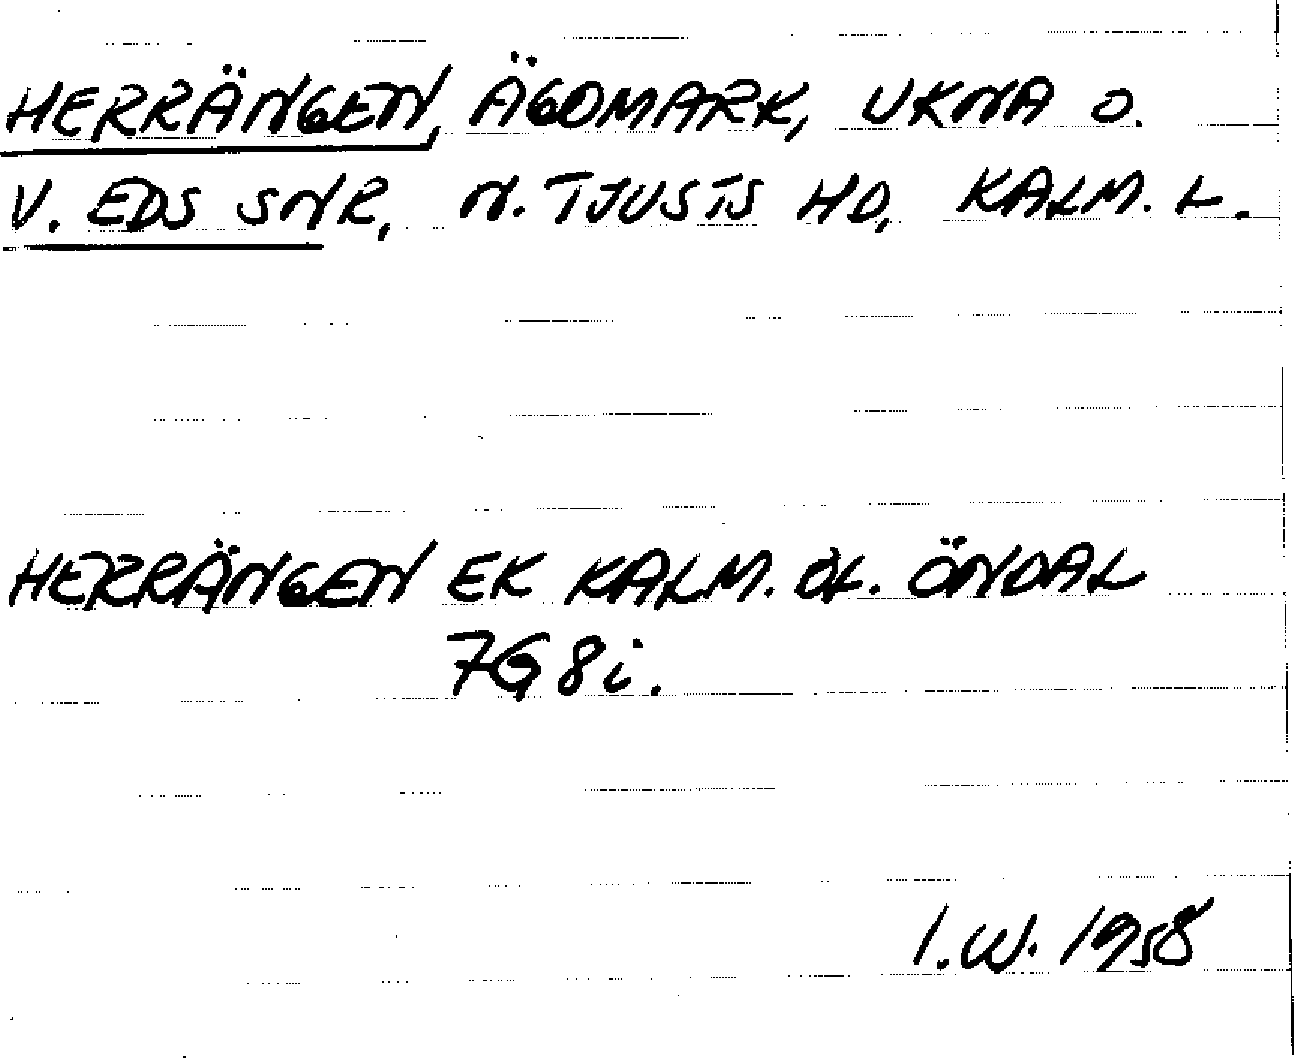 HERRÄNGEN, ÄGOMARK, UKNA O.
V. EDS SNR, N. TJUSTS HD, KALM. L.
HERRÄNGEN EK KALM. DL. ÖNDAL
7G 8i.
I.W. 1958